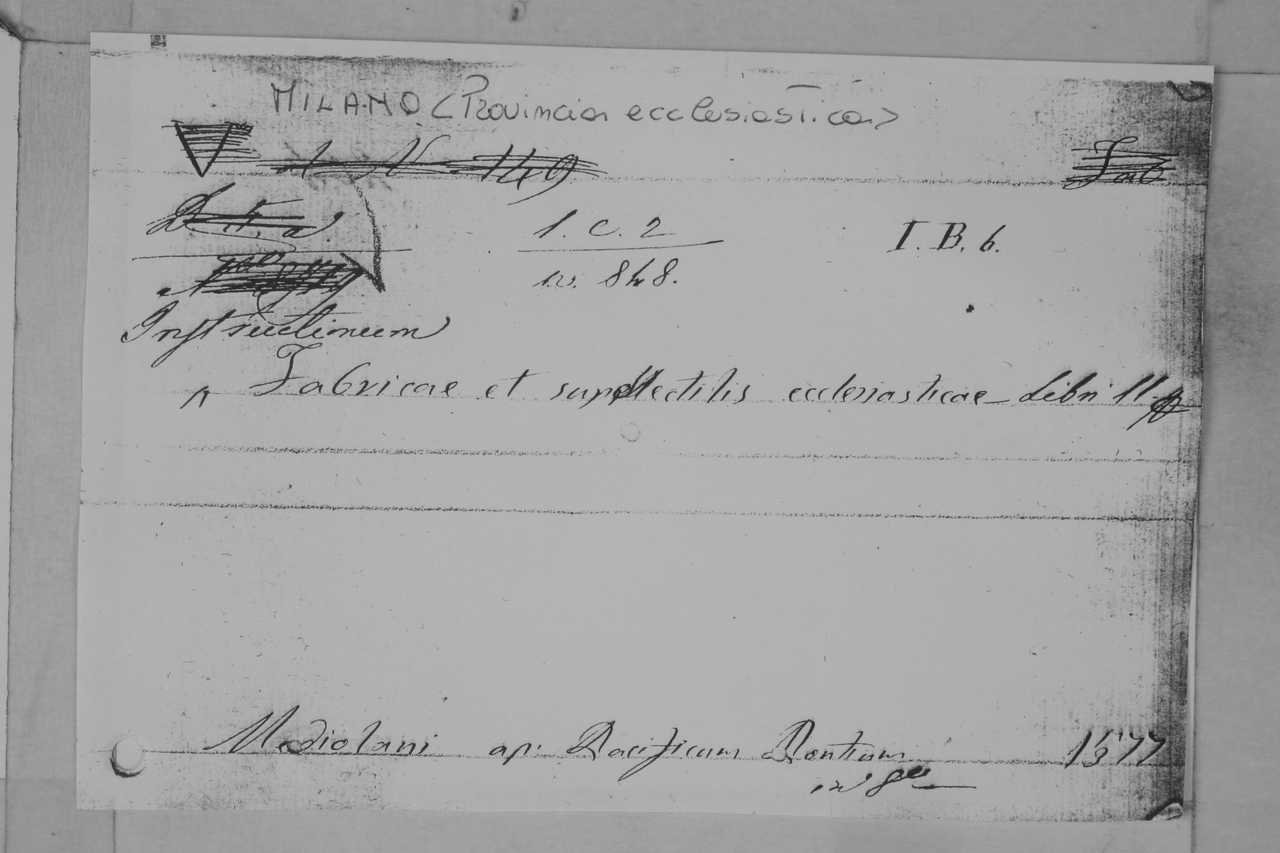 MILANO <Provincia ecclesiastica>
149
Fab
1. C. 2
I. B. 6.
n. 848.
Instructionum
Fabricae et supellectilis ecclesiasticae Libri II.
Mediolani ap: Pacificum Pontium 1577
in 8º